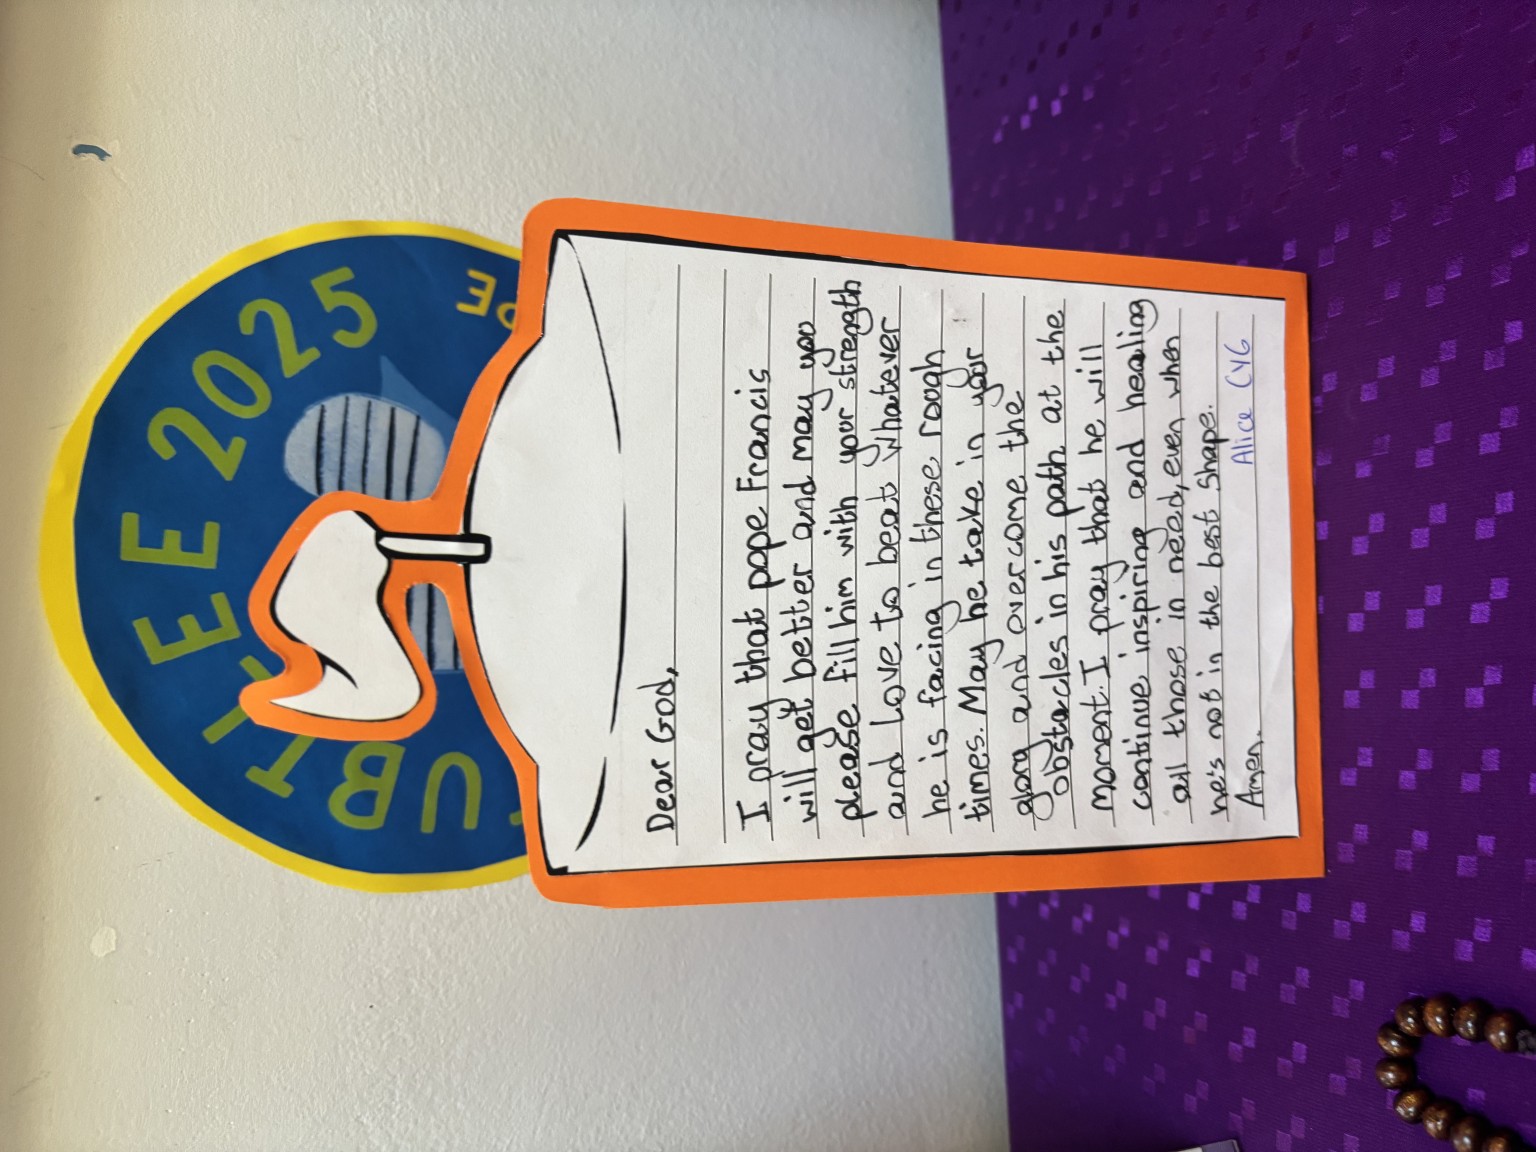 JUBILEE 2025
Dear God,
I pray that pope Francis
will get better and may you
please fill him with your strength
and Love to beat whatever
he is facing in these rough
times. May he take in your
glory and overcome the
obstacles in his path at the
moment. I pray that he will
continue inspiring and healing
all those in need, even when
he's not in the best shape.
Amen. Alice CY6